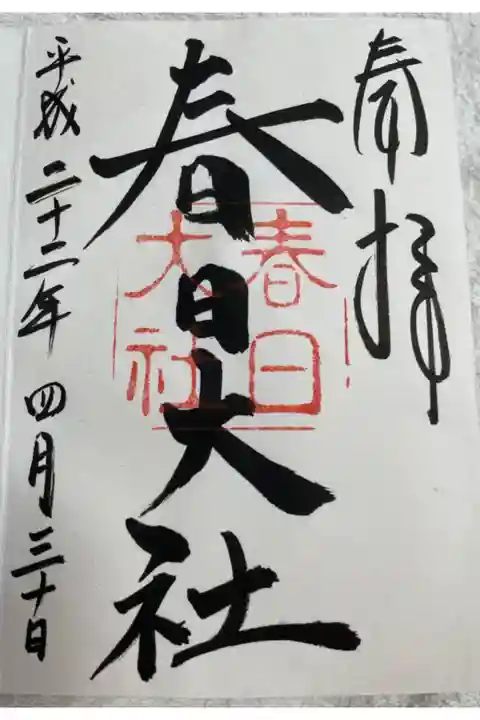 奉拝
春日大社
春日
大社
平成二十二年四月三十日